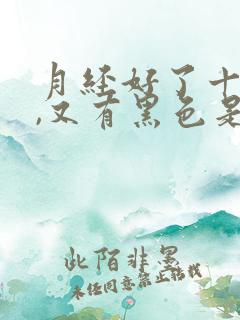 月经好了十
,又有黑色是
此陌非墨
未经同意禁止转载